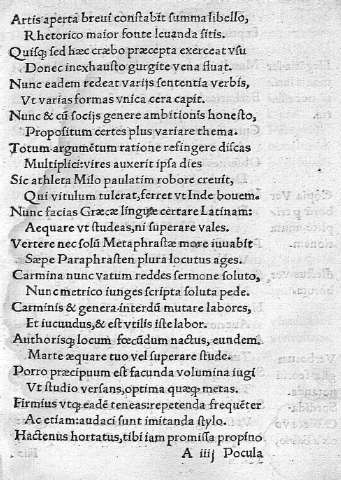 Artis aperta breui constabit summa libello,
Rhetorico maior fonte leuanda sitis.
Quisq; sed hæc cræbo præcepta exerceat vsu
Donec inexhausto gurgite vena fluat.
Nunc eadem redeat varijs sententia verbis,
Vt varias formas vnica cera capit.
Nunc & cū socijs genere ambitionis honesto,
Propositum certes plus variare thema.
Totum argumētum ratione refingere discas
Multiplici: vires auxerit ipsa dies
Sic athleta Milo paulatim robore creuit,
Qui vitulum tulerat, ferret vt Inde bouem.
Nunc facias Græcæ linguæ certare Latinam:
Aequare vt studeas, ni superare vales.
Vertere nec solū Metaphrastæ more iuuabit
Sæpe Paraphrasten plura locutus ages.
Carmina nunc vatum reddes sermone soluto,
Nunc metrico iunges scripta soluta pede.
Carminis & genera interdū mutare labores,
Et iucundus, & est vtilis iste labor.
Authorisq; locum fœcūdum nactus, eundem.
Marte æquare tuo vel superare stude.
Porro præcipuum est facunda volumina iugi
Vt studio versans, optima quæq; metas.
Firmius vtq; eadē teneas: repetenda frequēter
Ac etiam: audaci sunt imitanda stylo.
Hactenus hortatus, tibi iam promissa propino
A iiij Pocula